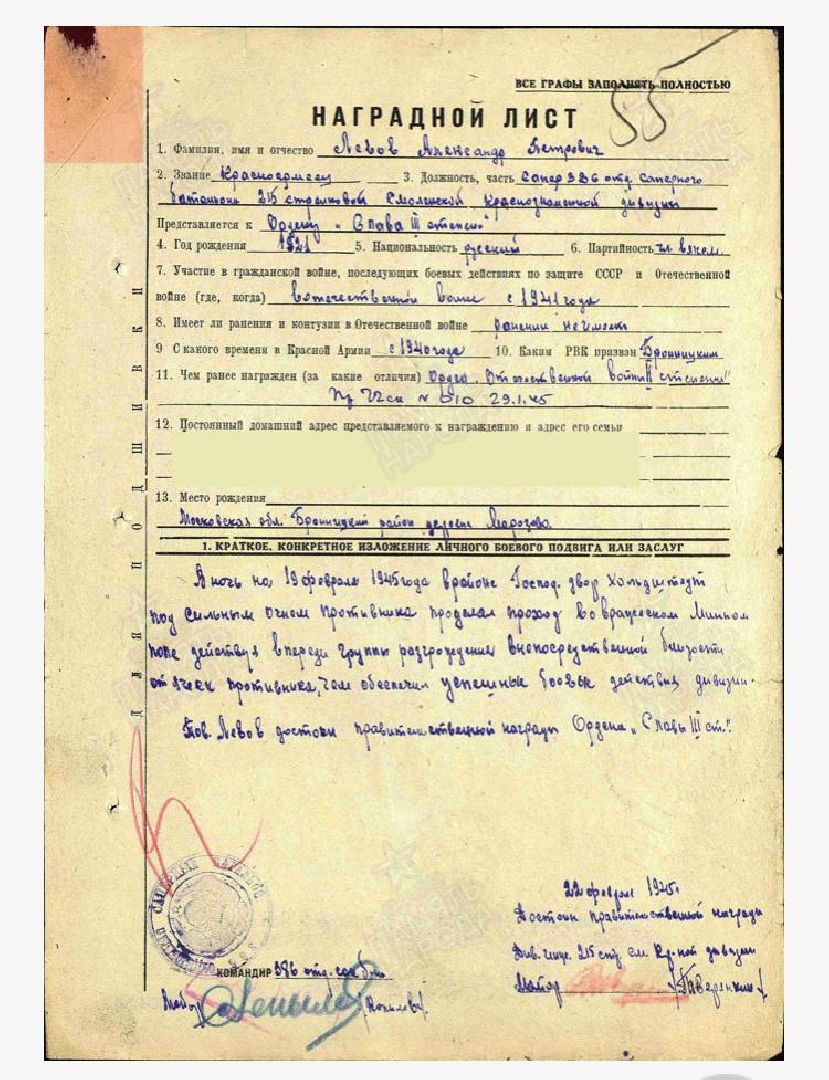 55
ВСЕ ГРАФЫ ЗАПОЛНЯТЬ ПОЛНОСТЬЮ
НАГРАДНОЙ ЛИСТ
1. Фамилия, имя и отчество Левов Александр Петрович
2. Звание Красноармеец 3. Должность, часть Сапер 386 отд. Саперного
батальона 215 стрелковой Смоленской Краснознаменной дивизии
Представляется к Ордену „Слава III степени"
4. Год рождения 1921 5. Национальность русский 6. Партийность чл. влксм.
7. Участие в гражданской войне, последующих боевых действиях по защите СССР и Отечественной
войне (где, когда) в отечественной войне с 1941 года
8. Имеет ли ранения и контузии в Отечественной войне ранений не имеет
9 С какого времени в Красной Армии с 1940 года 10. Каким РВК призван Бронницким
11. Чем ранее награжден (за какие отличия) Орден „Отечественной войны II степени"
Пр 72 ск № 010 29.1.45
12. Постоянный домашний адрес представляемого к награждению и адрес его семьи
13. Место рождения
Московская обл. Бронницкий район Морозово
1. КРАТКОЕ, КОНКРЕТНОЕ ИЗЛОЖЕНИЕ ЛИЧНОГО БОЕВОГО ПОДВИГА ИЛИ ЗАСЛУГ
В ночь на 19 февраля 1945 года в районе Господ. двор
под сильным огнем противника проделал проход во вражеском минном
поле действуя впереди группы разграждения в непосредственной близости
от ячеек противника, чем обеспечил успешные боевые действия дивизии.
Тов. Левов достоин правительственной награды Ордена „Славы III ст.".
ДЛЯ ПОДШИВКИ
22 февраля 1945г.
Достоин правительственной награды
Див. инж. 215 сд см. Кр-ной дивизии
КОМАНДИР 386 отд. сап б-на
Майор
Майор /Копылов/